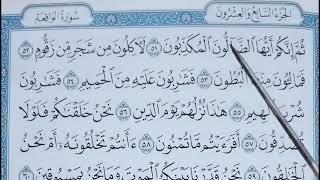 الجزء السابع والعشرون
سورة الواقعة
ثُمَّ إِنَّكُمْ أَيُّهَا الضَّآلُّونَ الْمُكَذِّبُونَ ٥١ لَآكِلُونَ مِن شَجَرٍ مِّن زَقُّومٍ ٥٢
فَمَالِـُٔونَ مِنْهَا الْبُطُونَ ٥٣ فَشَارِبُونَ عَلَيْهِ مِنَ الْحَمِيمِ ٥٤ فَشَارِبُونَ
شُرْبَ الْهِيمِ ٥٥ هَٰذَا نُزُلُهُمْ يَوْمَ الدِّينِ ٥٦ نَحْنُ خَلَقْنَاكُمْ فَلَوْلَا
تُصَدِّقُونَ ٥٧ أَفَرَءَيْتُم مَّا تُمْنُونَ ٥٨ ءَأَنتُمْ تَخْلُقُونَهُۥٓ أَمْ نَحْنُ
الْخَالِقُونَ ٥٩ نَحْنُ قَدَّرْنَا بَيْنَكُمُ الْمَوْتَ وَمَا نَحْنُ بِمَسْبُوقِينَ ٦٠